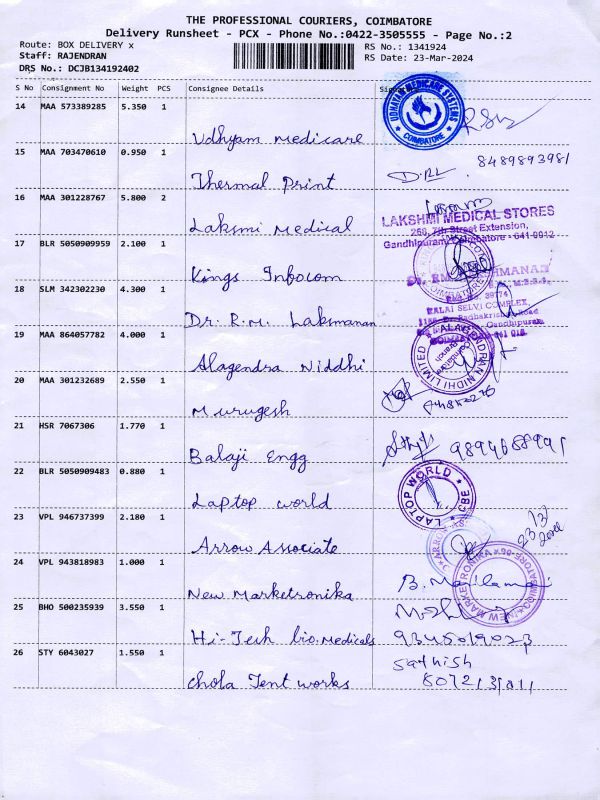 THE PROFESSIONAL COURIERS, COIMBATORE
Delivery Runsheet - PCX - Phone No.:0422-3505555 - Page No.:2
Route: BOX DELIVERY x
RS No.: 1341924
Staff: RAJENDRAN
RS Date: 23-Mar-2024
DRS No.: DCJB134192402
S No Consignment No Weight PCS Consignee Details
14 MAA 573389285 5.350 1
UDHAYAM MEDICARE SYSTEMS
COIMBATORE
Udhyam medicare
15 MAA 703470610 0.950 1
8489893981
Thermal Print
16 MAA 301228767 5.800 2
Laksmi Medical
LAKSHMI MEDICAL STORES
268, 7th Street Extension,
Gandhipuram, Coimbatore - 641 0012
17 BLR 5050909959 2.100 1
Kings Infocom
18 SLM 342302230 4.300 1
39774
KALAI SELVI COMPLEX,
Dr. R.M. Laksmanan
19 MAA 864057782 4.000 1
Alagendra Niddhi
20 MAA 301232689 2.550 1
Murugesh
21 HSR 7067306 1.770 1
Balaji Engg
22 BLR 5050909483 0.880 1
LAPTOP WORLD
CBE
Laptop world
23 VPL 946737399 2.180 1
23/3/
Arrow Associate
24 VPL 943818983 1.000 1
NEW MARKETRONIKA
New Marketronika
25 BHO 500235939 3.550 1
Hi-Tech bio.Medicals
26 STY 6043027 1.550 1
Sathish
Chola Tent works